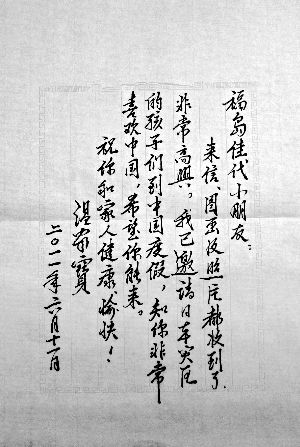 福岛佳代小朋友：
来信、图画及照片都收到了，
非常高興。我已邀请日本灾区
的孩子们到中国度假，知你非常
喜欢中国，希望你能来。
祝你和家人健康、愉快！
温家寶
二〇一一年六月十一日